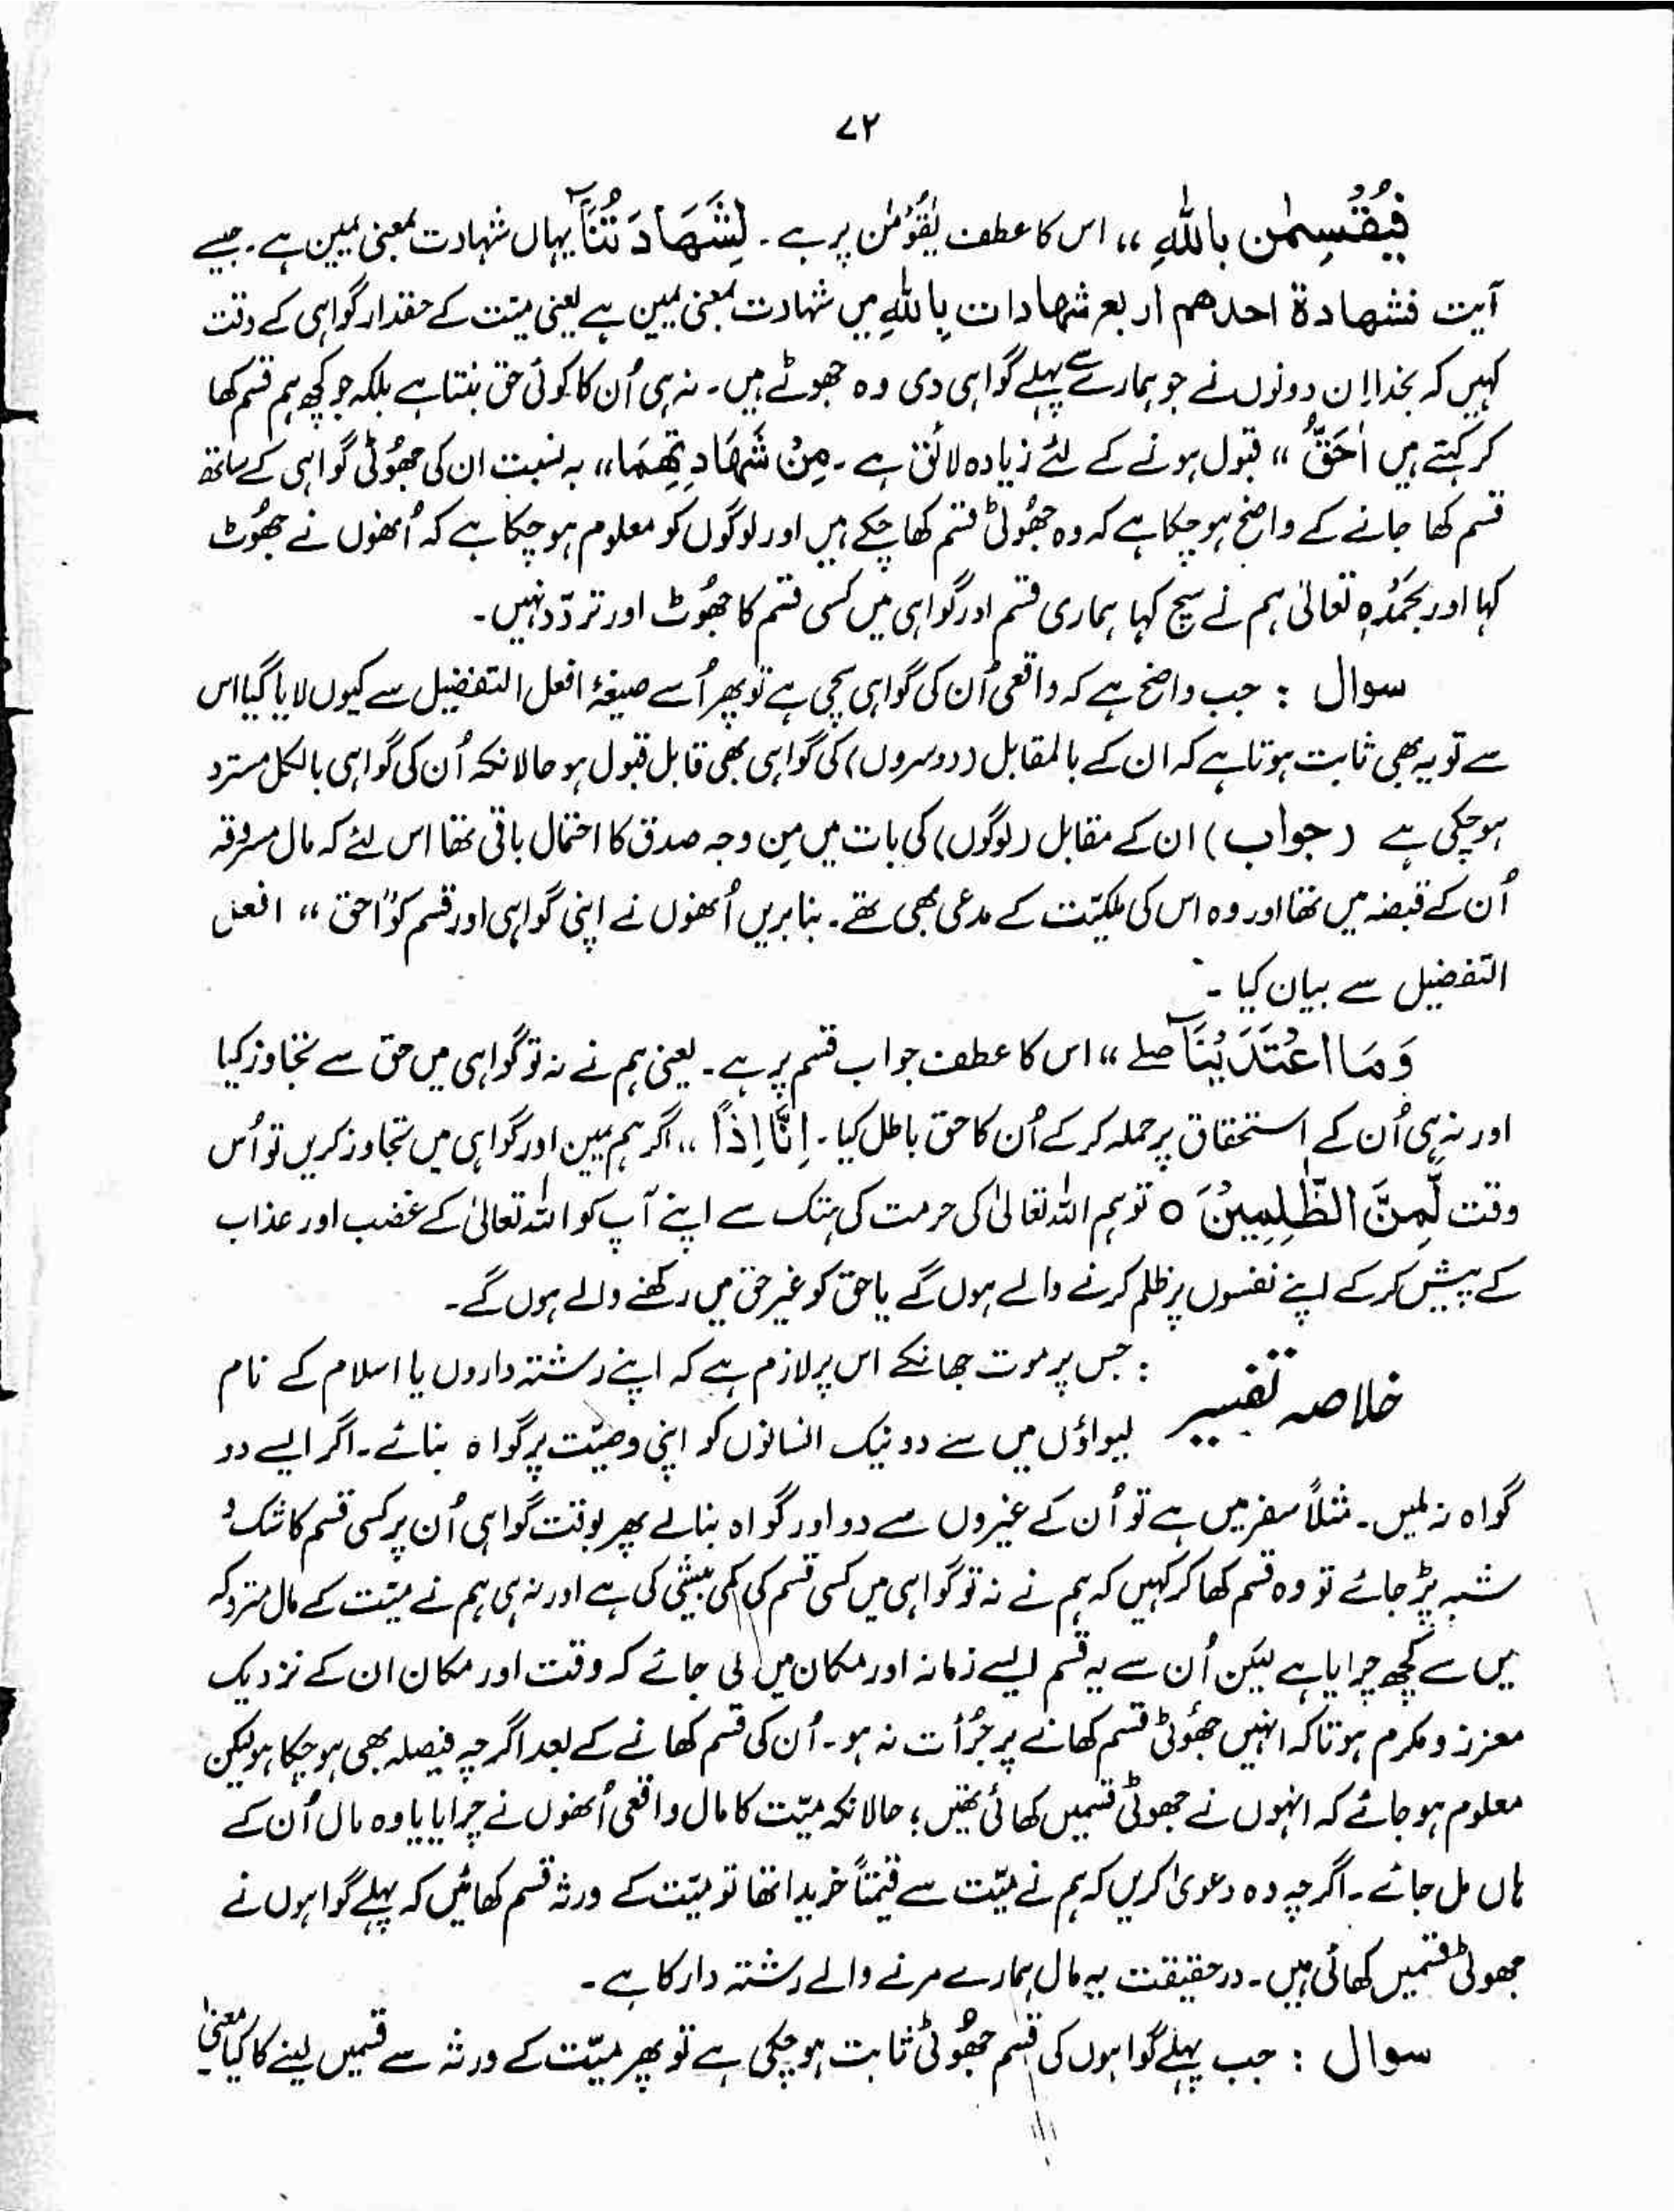 ۷۲
فَیُقْسِمٰنِ بِاللّٰهِ ،، اس کا عطف یَقُوْمٰن پر ہے ۔ لَشَهَادَتُنَآ یہاں شہادت بمعنی یمین ہے ۔ جیسے
آیت فشهادة احدهم اربع شهادات بِاللّٰهِ میں شہادت بمعنی یمین ہے یعنی میّت کے حقدار گواہی کے وقت
کہیں کہ بخدا ان دونوں نے جو ہمارے سے پہلے گواہی دی وہ جھوٹے ہیں ۔ نہ ہی اُن کا کوئی حق بنتا ہے بلکہ جو کچھ ہم قسم کھا
کر کہتے ہیں اَحَقُّ ،، قبول ہونے کے لئے زیادہ لائق ہے ۔ مِنْ شَهَادَتِهِمَا ،، بہ نسبت ان کی جھُوٹی گواہی کے ساتھ
قسم کھا جانے کے واضح ہو چکا ہے کہ وہ جھُوٹی قسم کھا چکے ہیں اور لوگوں کو معلوم ہو چکا ہے کہ اُنھوں نے جھُوٹ
کہا اور بحمدُہٖ تعالیٰ ہم نے سچ کہا ہماری قسم اور گواہی میں کسی قسم کا جھُوٹ اور تردّد نہیں ۔
سوال : جب واضح ہے کہ واقعی اُن کی گواہی سچی ہے تو پھر اُسے صیغۂ افعل التفضیل سے کیوں لایا گیا اس
سے تو یہ بھی ثابت ہوتا ہے کہ ان کے بالمقابل (دوسروں) کی گواہی بھی قابل قبول ہو حالانکہ اُن کی گواہی بالکل مسترد
ہو چکی ہے (جواب) ان کے مقابل (لوگوں) کی بات میں مِن وجہ صدق کا احتمال باقی تھا اس لئے کہ مال مسروقہ
اُن کے قبضہ میں تھا اور وہ اس کی ملکیّت کے مدعی بھی تھے ۔ بنا بریں اُنھوں نے اپنی گواہی اور قسم کو ”احق ،، افعل
التفضیل سے بیان کیا ۔
وَمَا اعْتَدَیْنَآ صلے ،، اس کا عطف جواب قسم پر ہے ۔ یعنی ہم نے نہ تو گواہی میں حق سے تجاوز کیا
اور نہ ہی اُن کے استحقاق پر حملہ کر کے اُن کا حق باطل کیا ۔ اِنَّا اِذًا ،، اگر ہم یمین اور گواہی میں تجاوز کریں تو اُس
وقت لَّمِنَ الظّٰلِمِیْنَ ○ تو ہم اللہ تعالیٰ کی حرمت کی ہتک سے اپنے آپ کو اللہ تعالیٰ کے غضب اور عذاب
کے پیش کر کے اپنے نفسوں پر ظلم کرنے والے ہوں گے یا حق کو غیر حق میں رکھنے والے ہوں گے ۔
خلاصہ تفسیر : جس پر موت جھانکے اس پر لازم ہے کہ اپنے رشتہ داروں یا اسلام کے نام
لیواؤں میں سے دو نیک انسانوں کو اپنی وصیّت پر گواہ بنائے ۔ اگر ایسے دو
گواہ نہ ملیں ۔ مثلاً سفر میں ہے تو اُن کے غیروں سے دو اور گواہ بنالے پھر بوقت گواہی اُن پر کسی قسم کا شک و
شبہ پڑ جائے تو وہ قسم کھا کر کہیں کہ ہم نے نہ تو گواہی میں کسی قسم کی کمی بیشی کی ہے اور نہ ہی ہم نے میّت کے مال متروکہ
میں سے کچھ چرایا ہے لیکن اُن سے یہ قسم ایسے زمانہ اور مکان میں لی جائے کہ وقت اور مکان ان کے نزدیک
معزز و مکرم ہو تاکہ انہیں جھُوٹی قسم کھانے پر جُرأت نہ ہو ۔ اُن کی قسم کھانے کے بعد اگرچہ فیصلہ بھی ہو چکا ہو لیکن
معلوم ہو جائے کہ انہوں نے جھوٹی قسمیں کھائی تھیں ؛ حالانکہ میّت کا مال واقعی اُنھوں نے چرایا یا وہ مال اُن کے
ہاں مل جائے ۔ اگرچہ وہ دعویٰ کریں کہ ہم نے میّت سے قیمتاً خریدا تھا تو میّت کے ورثہ قسم کھائیں کہ پہلے گواہوں نے
جھوٹی قسمیں کھائی ہیں ۔ درحقیقت یہ مال ہمارے مرنے والے رشتہ دار کا ہے ۔
سوال : جب پہلے گواہوں کی قسم جھُوٹی ثابت ہو چکی ہے تو پھر میّت کے ورثہ سے قسمیں لینے کا کیا معنیٰ ۔